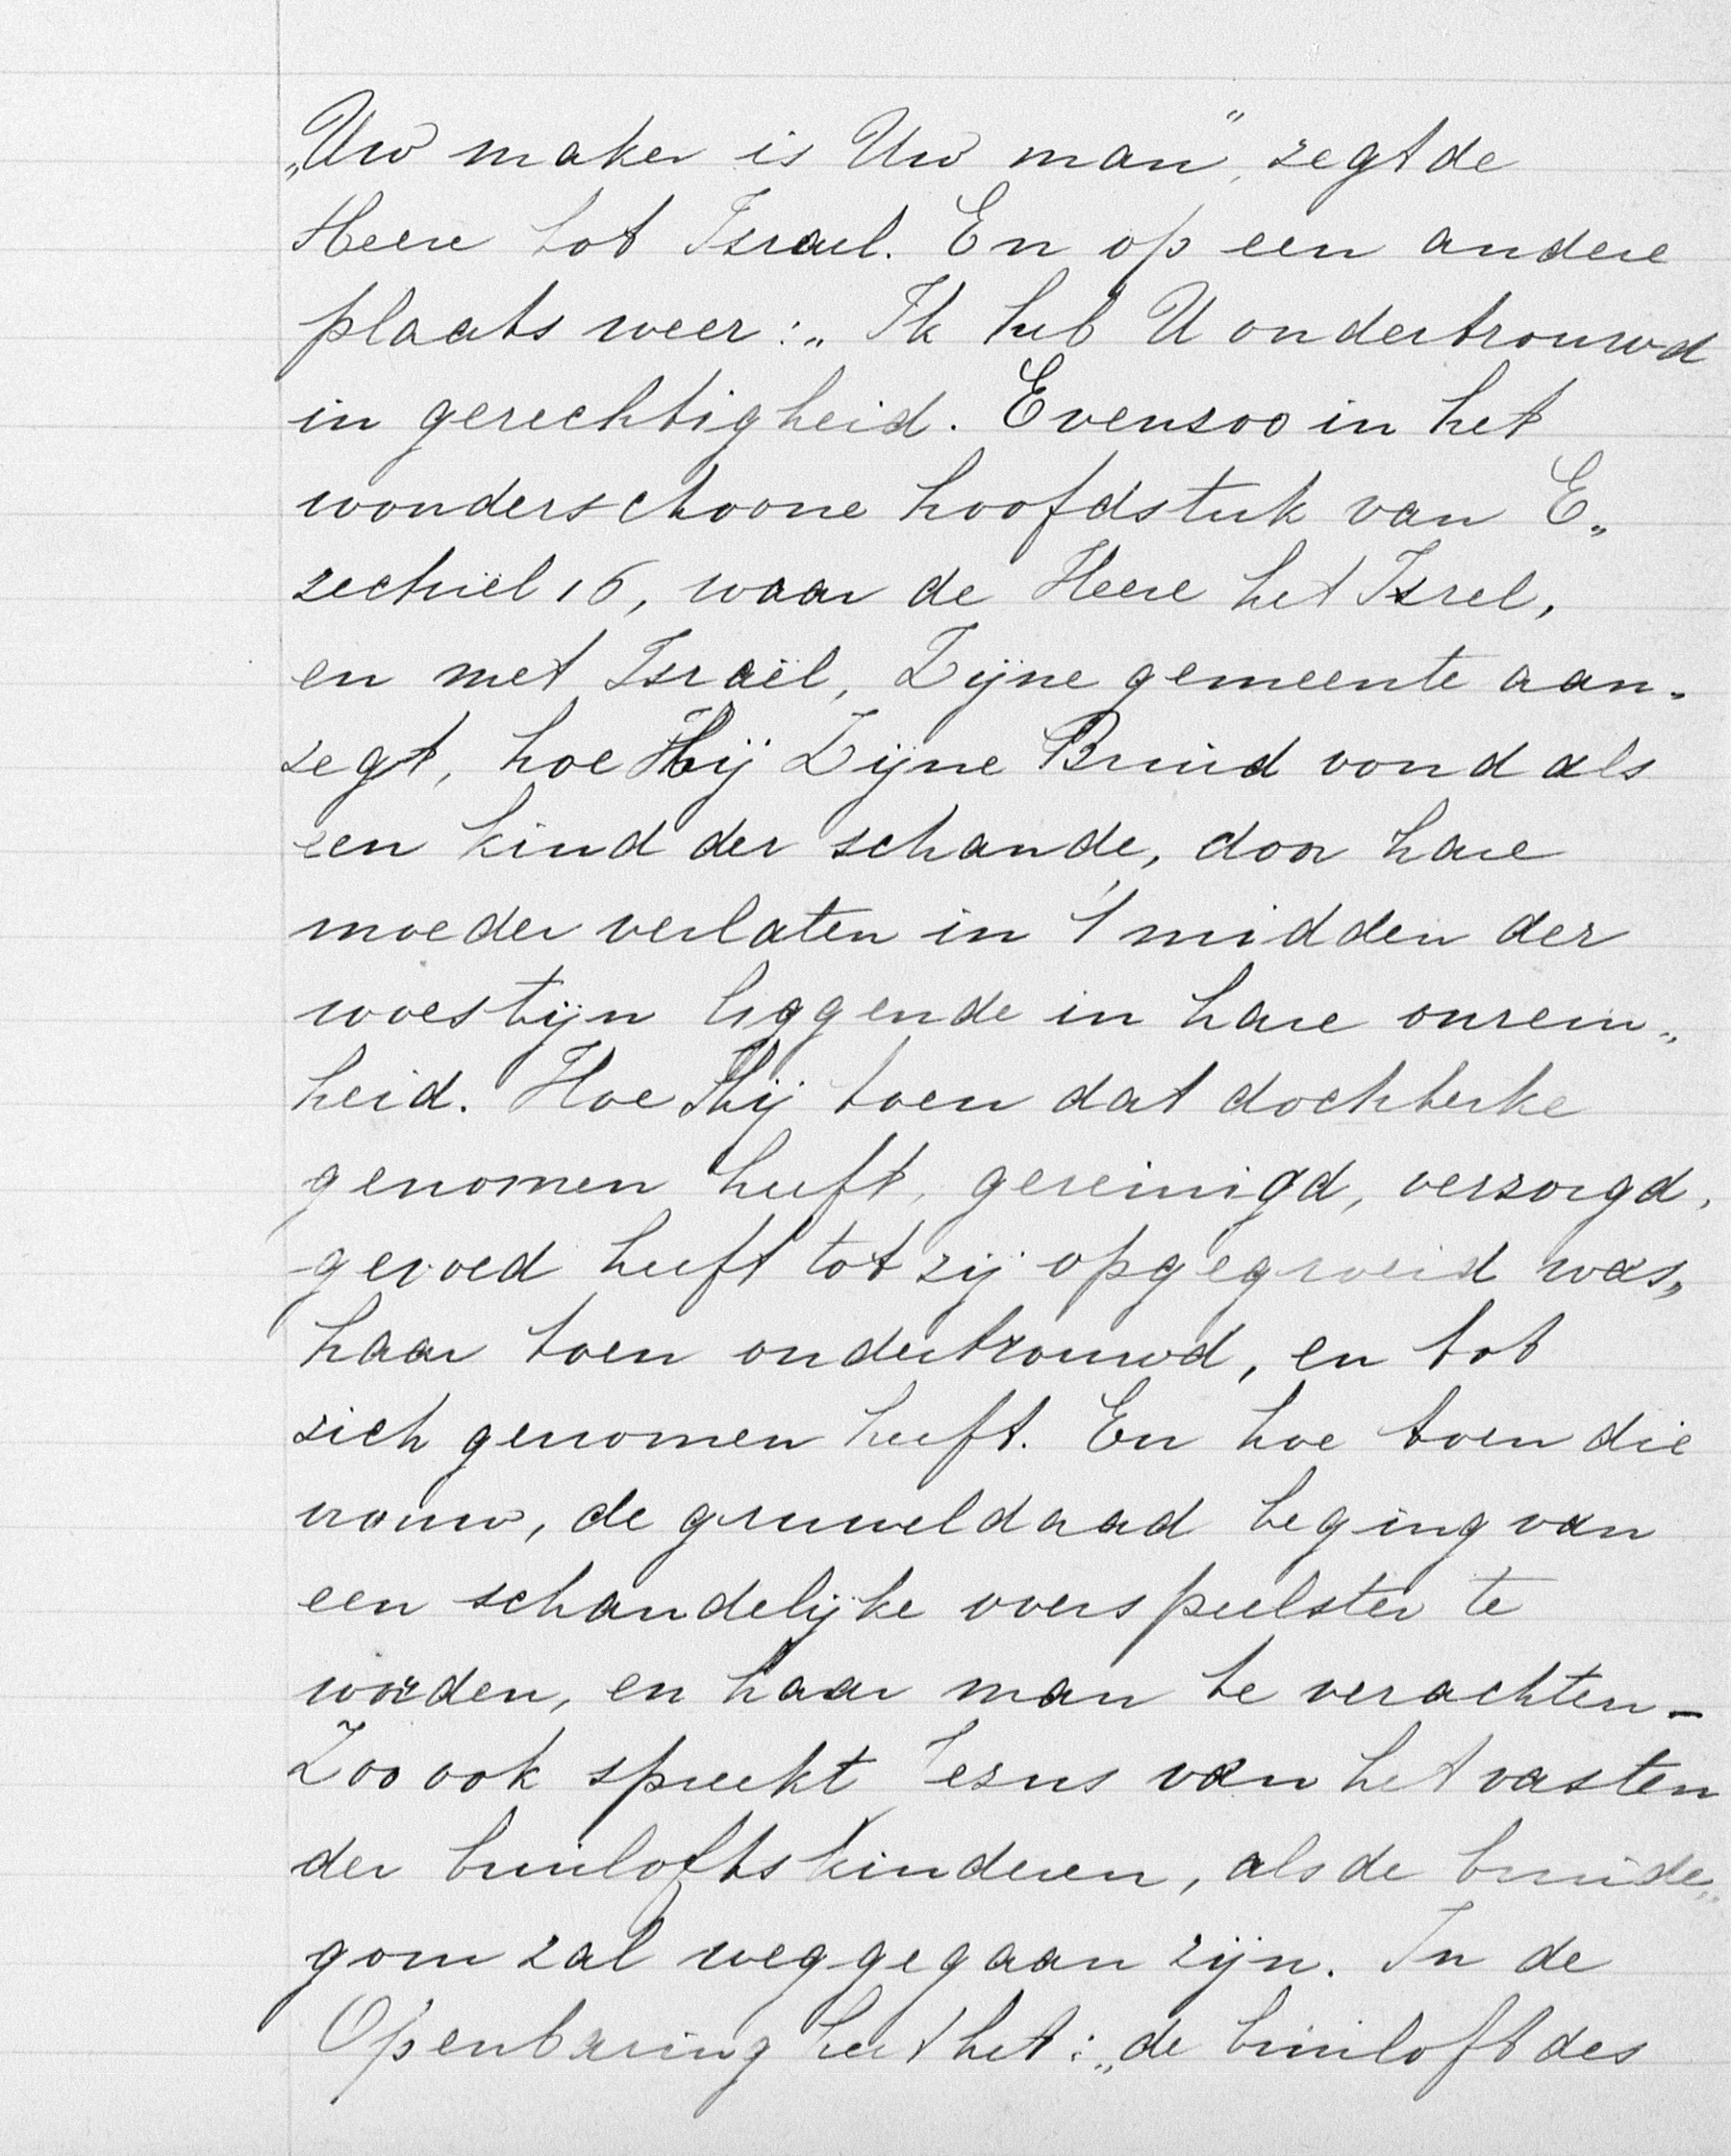 „Uw maker is Uw man”, zegt de
Heere tot Israel. En op een andere
plaats weer: „Ik heb U ondertrouwd
in gerechtigheid. Evenzoo in het
wonderschoone hoofdstuk van E„
zechiël 16, waar de Heere het Isrel,
en met Israël, Zijne gemeente aan-
zegt, hoe Hij Zijne Bruid vond als
een kind der schande, door hare
moeder verlaten in 't midden der
woestijn liggende in hare onrein„
heid. Hoe Hij toen dat dochterke
genomen heeft, gereinigd, verzorgd,
gevoed heeft tot zij opgegroeid was„
haar toen ondertrouwd, en tot
zich genomen heeft. En hoe toen die
vrouw, de gruweldaad beging van
een schandelijke overspeelster te
worden, en haar man te verachten-
Zoo ook spreekt Jezus van het vasten
der bruiloftskinderen, als de bruide„
gom zal weggegaan zijn. In de
Openbaring heet het: „de bruiloft des